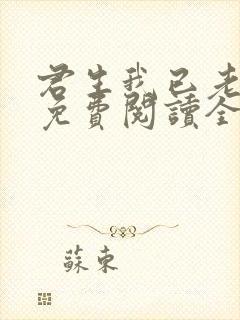 君生我已老
免費閱讀全
蘇東